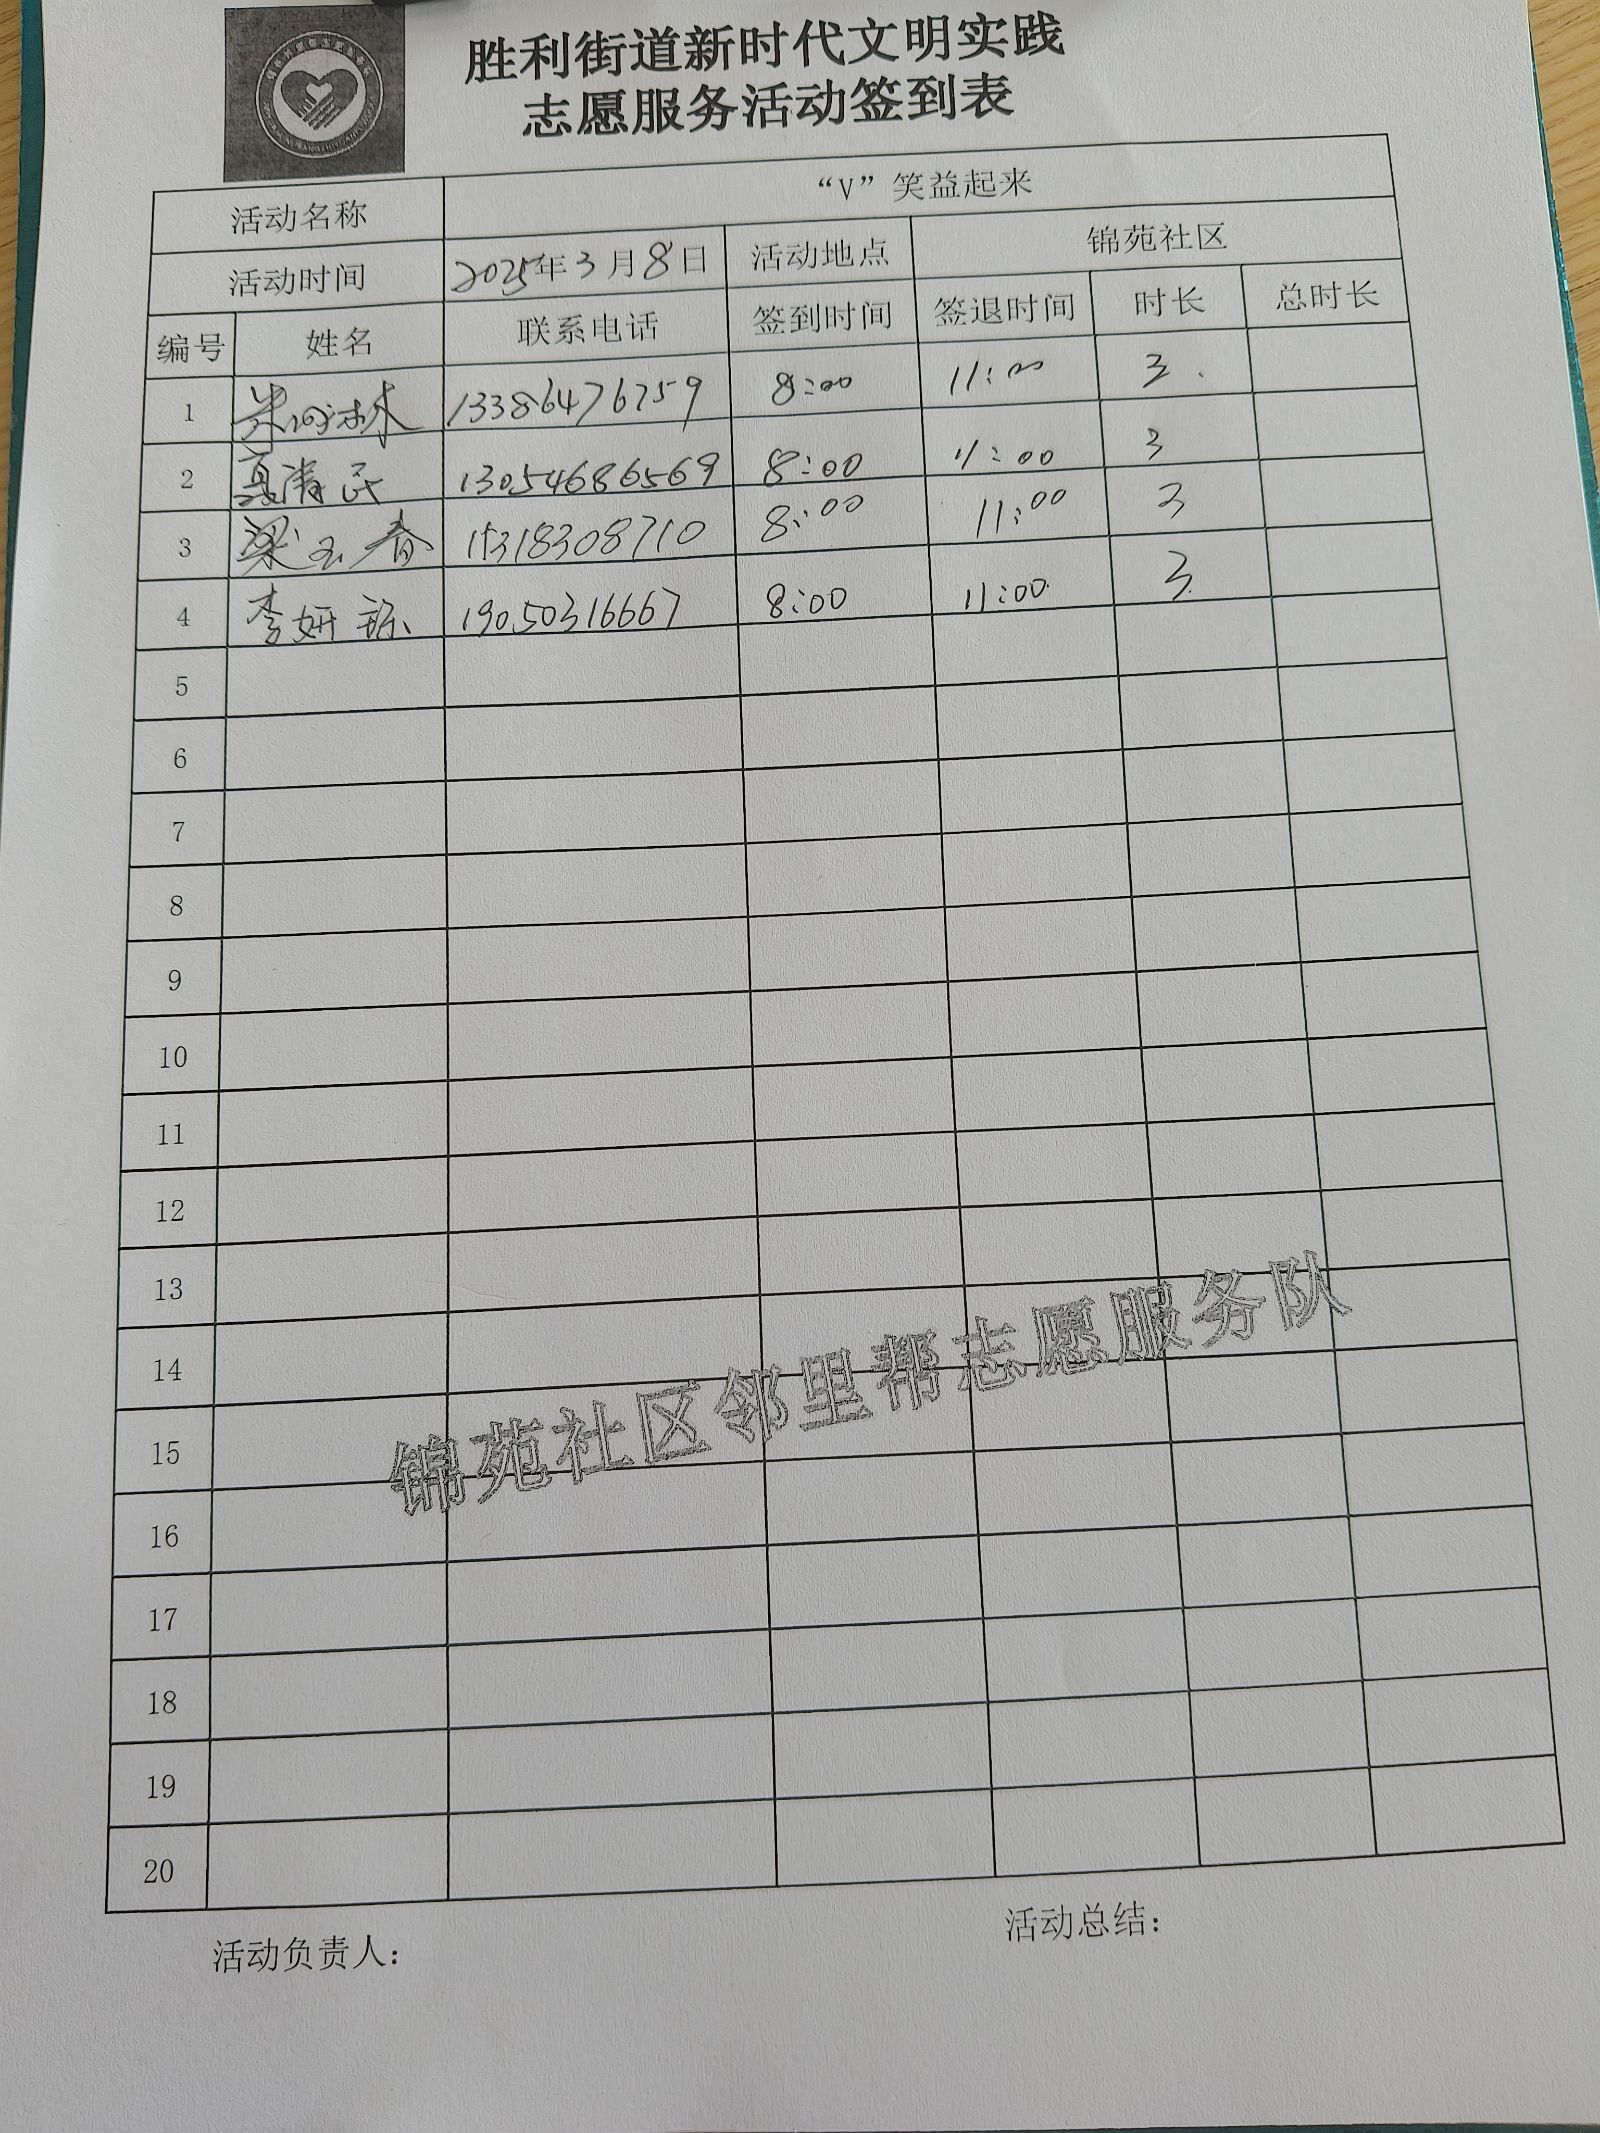 胜利街道新时代文明实践
志愿服务活动签到表
活动名称 “V”笑益起来
活动时间 2025年3月8日 活动地点 锦苑社区
编号 姓名 联系电话 签到时间 签退时间 时长 总时长
1 13386476759 8:00 11:00 3
2 高清民 13054686569 8:00 11:00 3
3 梁玉春 15318308710 8:00 11:00 3
4 李妍 19050316667 8:00 11:00 3
5
6
7
8
9
10
11
12
13
14
15
16
17
18
19
20
锦苑社区邻里帮志愿服务队
活动负责人: 活动总结: